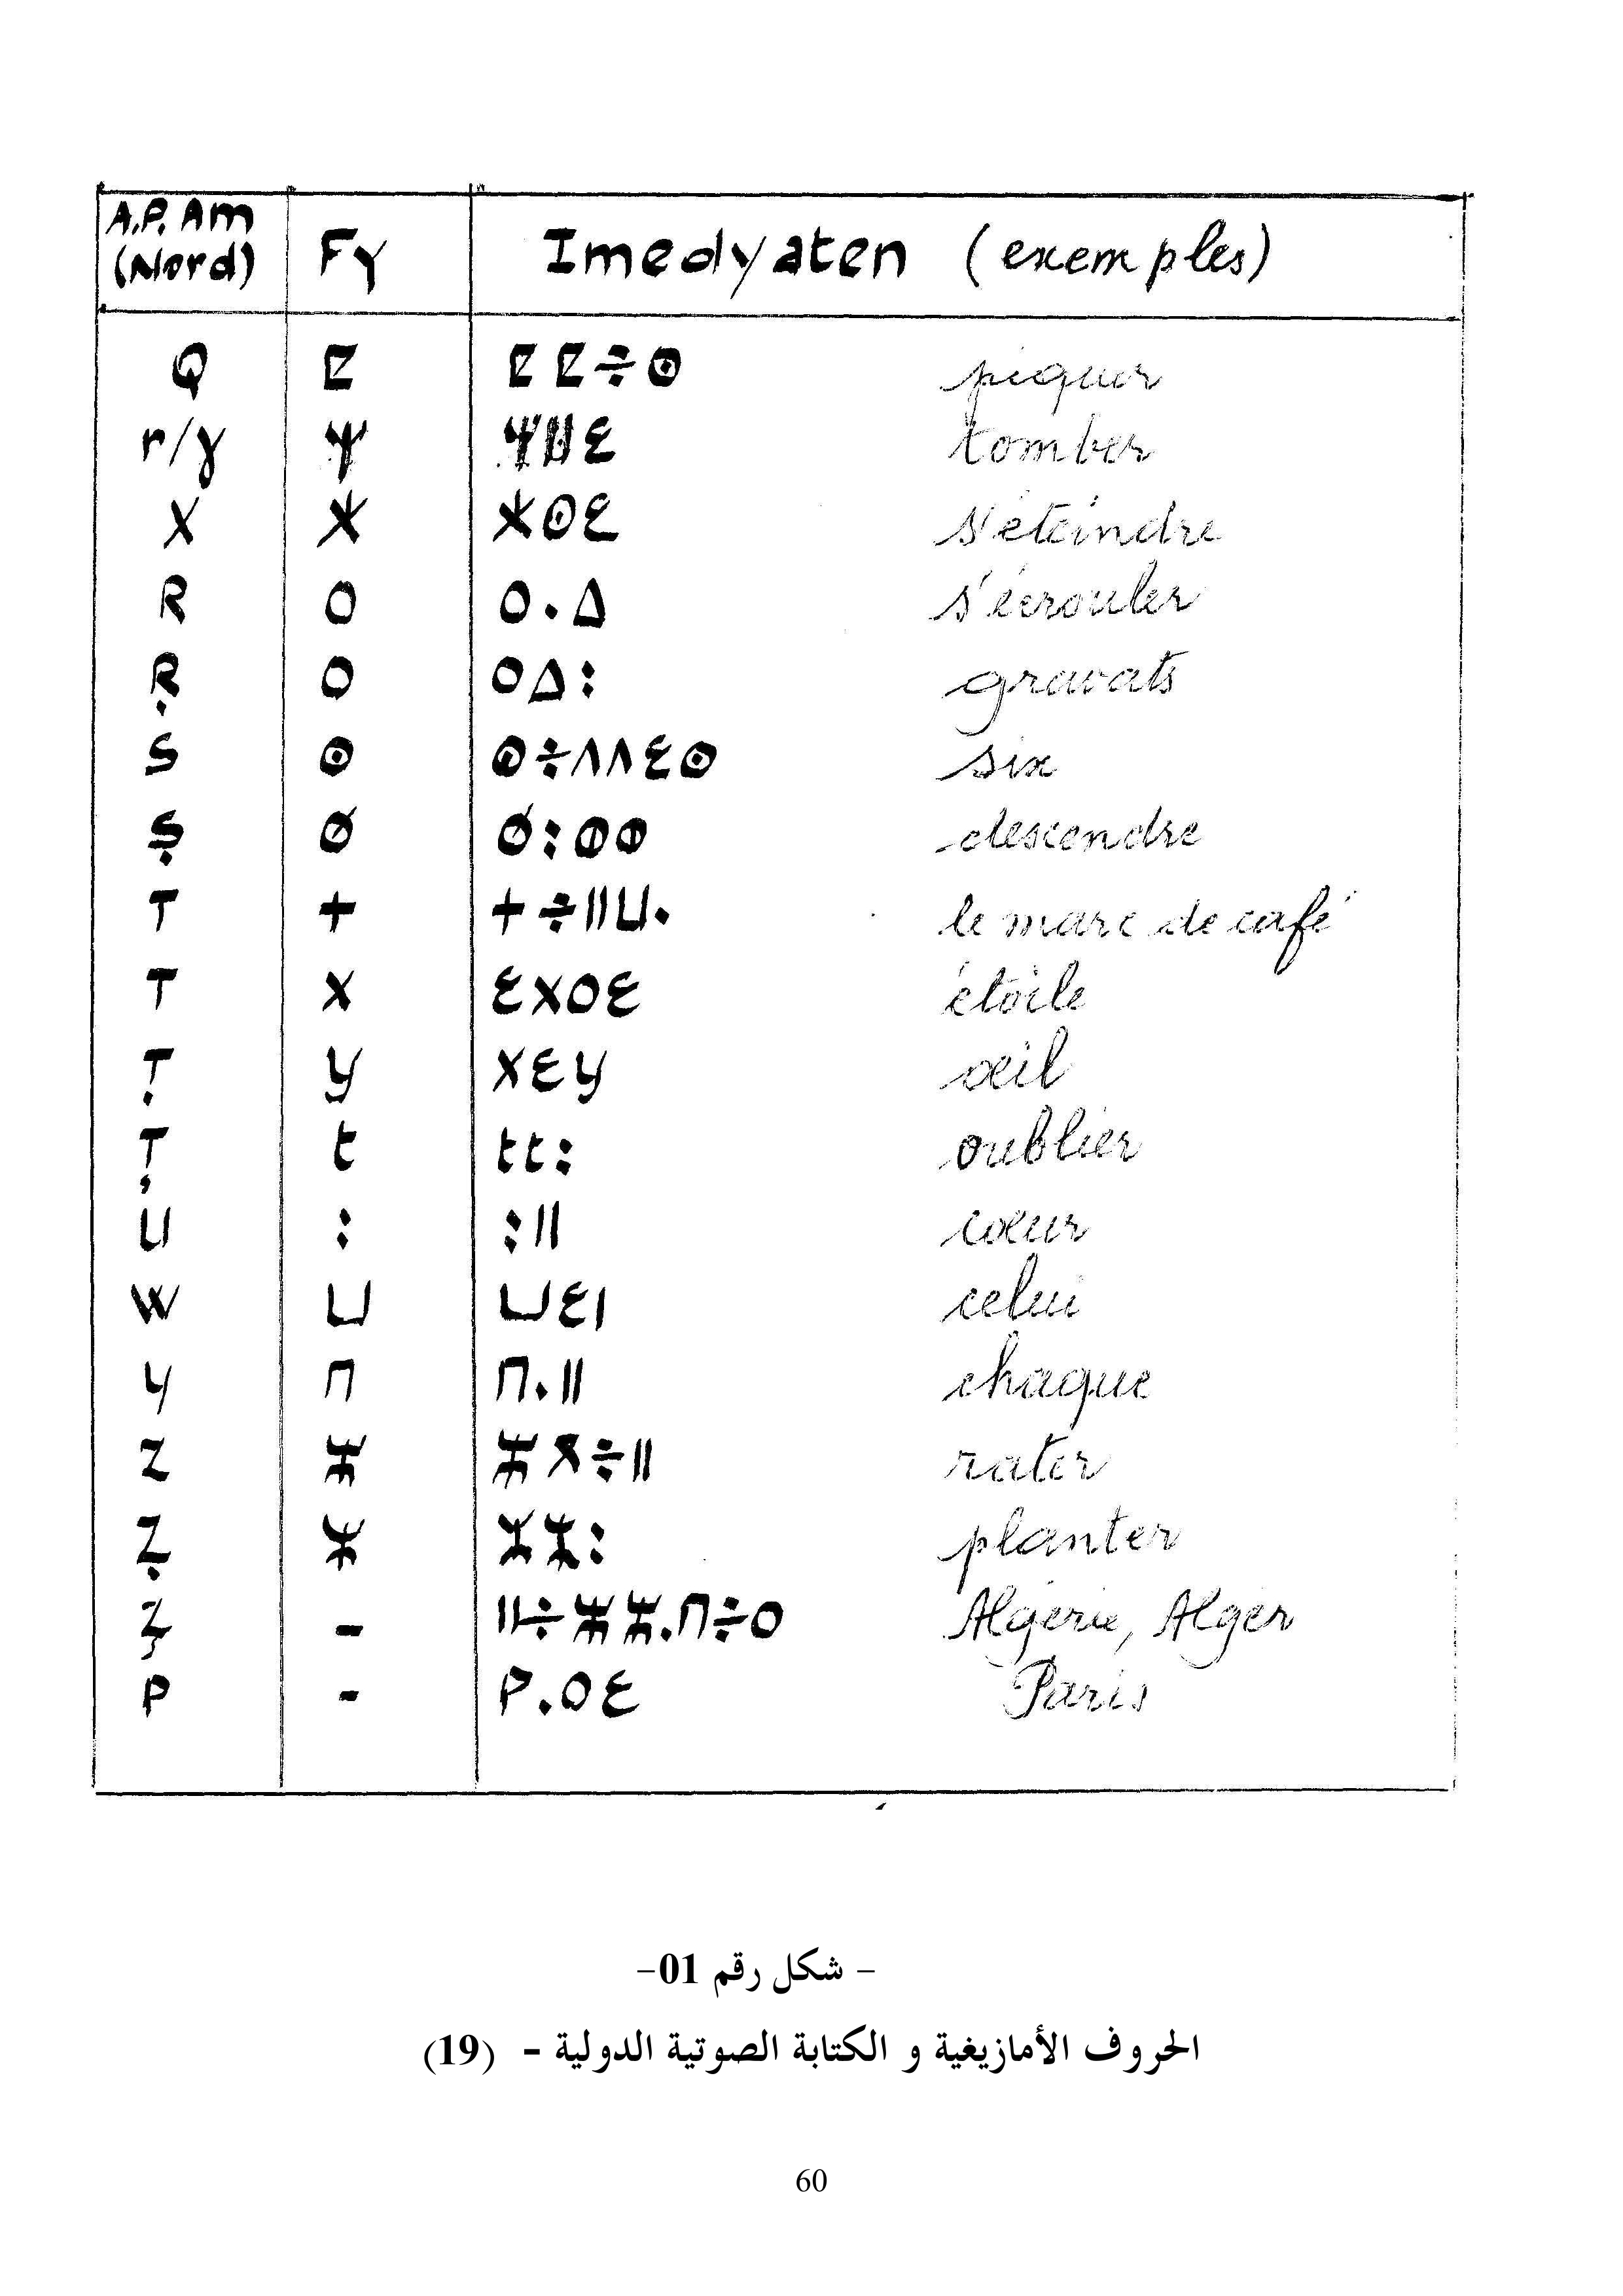 A.P. Am (Nord) Fy Imedyaten (exemples)
Q ⵇ ⵇⵇ÷ⵙ piquer
r/ɣ ⵖ ⵖⵍⵉ tomber
X ⵅ ⵅⵙⵉ s'éteindre
R O O.ⴷ s'écrouler
Ṛ O Oⴷ: gravats
S ⵙ ⵙ÷ΛΛⵉⵙ six
Ṣ Ø Ø:ⴱⴱ descendre
T + +÷ⵍⵡ. le marc de café
T X ƐXOƐ étoile
Ṭ y XƐy œil
Ţ t tt: oublier
U : :ⵍ cœur
W ⵡ ⵡƐI celui
y ⵏ ⵏ.ⵍ chaque
Z ⵣ ⵣⴳ÷ⵍ rater
Ẓ ⵥ ⵥⵥ: planter
Z̧ - ⵍ÷ⵣⵣ.ⵏ÷O Algérie, Alger
P - P.OƐ Paris
- شكل رقم 01-
الحروف الأمازيغية و الكتابة الصوتية الدولية - (19)
60